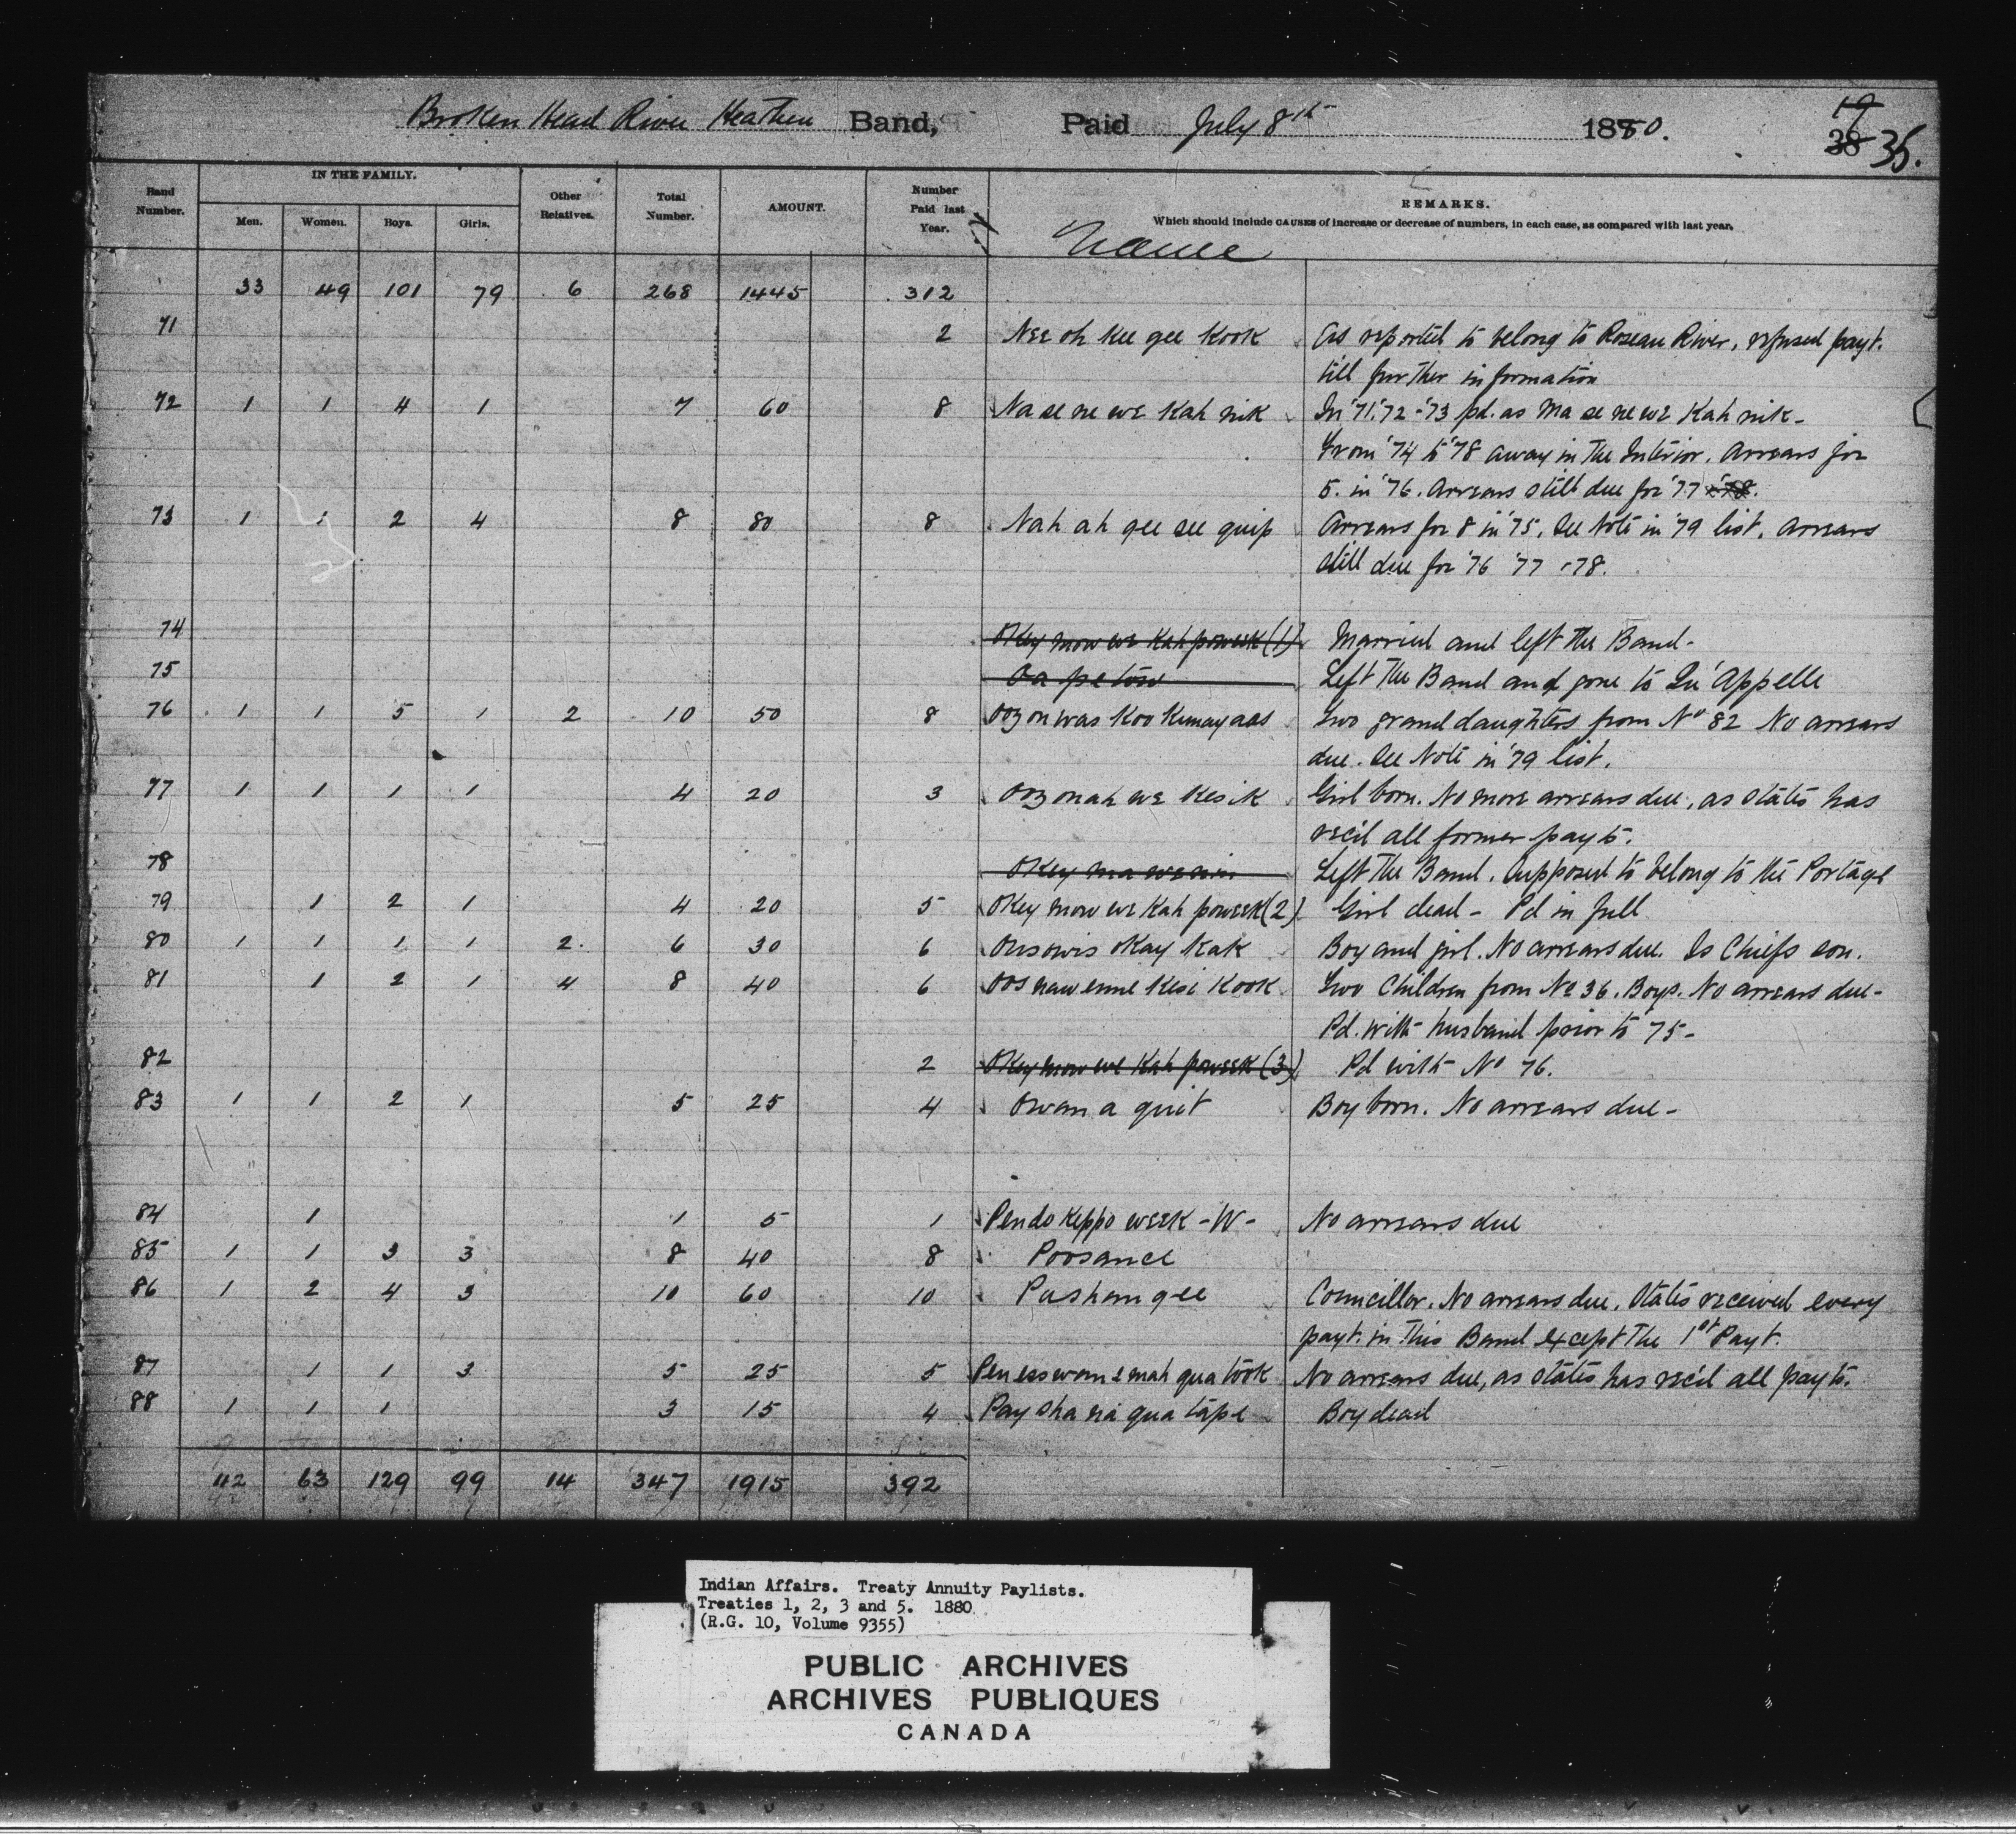 Broken Head River Heathen Band, Paid July 8th 1880. 19 38 35.
Band Number. IN THE FAMILY. Men. Women. Boys. Girls. Other Relatives. Total Number. AMOUNT. Number Paid last Year. REMARKS.
Which should include CAUSES of increase or decrease of numbers, in each case, as compared with last year.
Name
33 49 101 79 6 268 1445 312
71 2 Nee oh kee gee kook As reported to belong to Roseau River, refused payt.
till further information
72 1 1 4 1 7 60 8 Na se ne we kah nik In '71 '72 - '73 pd. as Ma se ne we kah nik -
From '74 to '78 away in the Interior. Arrears for
5. in '76. Arrears still due for '77 - '78.
73 1 1 2 4 8 80 8 Nah ah gee see quip Arrears for 8 in '75. See Note in '79 list. Arrears
still due for '76 '77 - 78.
74 Okey mow we kah poweek (1) Married and left the Band -
75 Oa pe tow Left the Band and gone to Qu'Appelle
76 1 1 5 1 2 10 50 8 Oozonwas koo kumay aas Two grand daughters from No 82 No arrears
due. See Note in '79 list.
77 1 1 1 1 4 20 3 Oozonah we kesik Girl born. No more arrears due, as states has
rec'd all former payts.
78 Okey ma we nin Left the Band. Supposed to belong to the Portage
79 1 2 1 4 20 5 Okey mow we kah poweek (2) Girl dead - Pd in full
80 1 1 1 1 2 6 30 6 Ousowis okay kak Boy and girl. No arrears due. Is Chiefs son.
81 1 2 1 4 8 40 6 Oos naw enne kesi kook Two Children from No 36. Boys. No arrears due -
Pd. with husband prior to '75 -
82 2 Okey mow we kah poweek (3) Pd with No 76.
83 1 1 2 1 5 25 4 Owan a quit Boy born. No arrears due -
84 1 1 5 1 Pendo keppo week - W - No arrears due
85 1 1 3 3 8 40 8 Poosance
86 1 2 4 3 10 60 10 Pashangee Councillor. No arrears due. States received every
payt. in this Band except the 1st Payt.
87 1 1 3 5 25 5 Peness wom e mah qua took No arrears due, as states has rec'd all payts.
88 1 1 1 3 15 4 Pay sha na qua tape Boy dead
42 63 129 99 14 347 1915 392
Indian Affairs. Treaty Annuity Paylists.
Treaties 1, 2, 3 and 5. 1880
(R.G. 10, Volume 9355)
PUBLIC ARCHIVES
ARCHIVES PUBLIQUES
CANADA